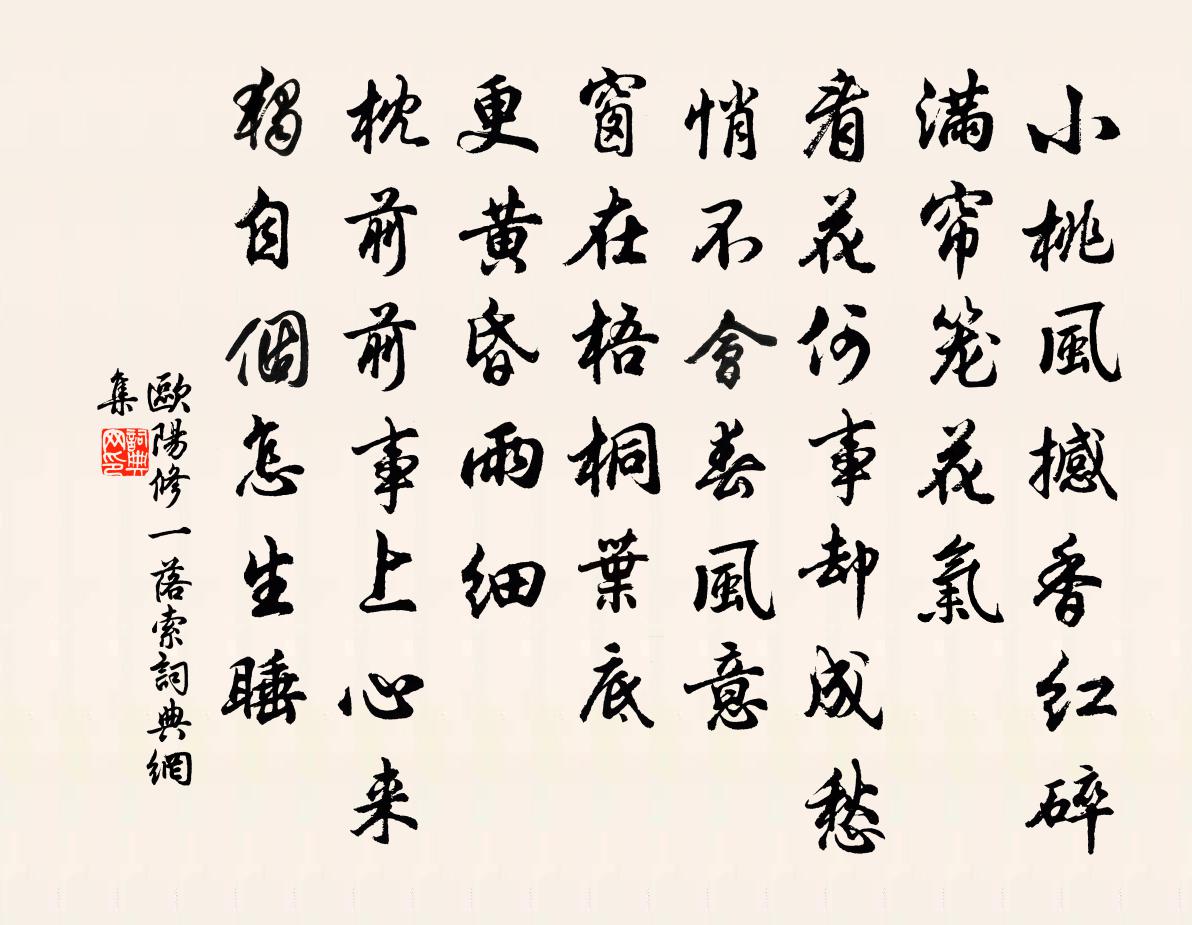 小桃風撼香红碎
满帘笼花氣
看花何事却成愁
悄不會春風意
窗在梧桐葉底
更黄昏雨细
枕前前事上心来
獨自個怎生睡
歐陽修一落索詞典網
集
詞典
网印